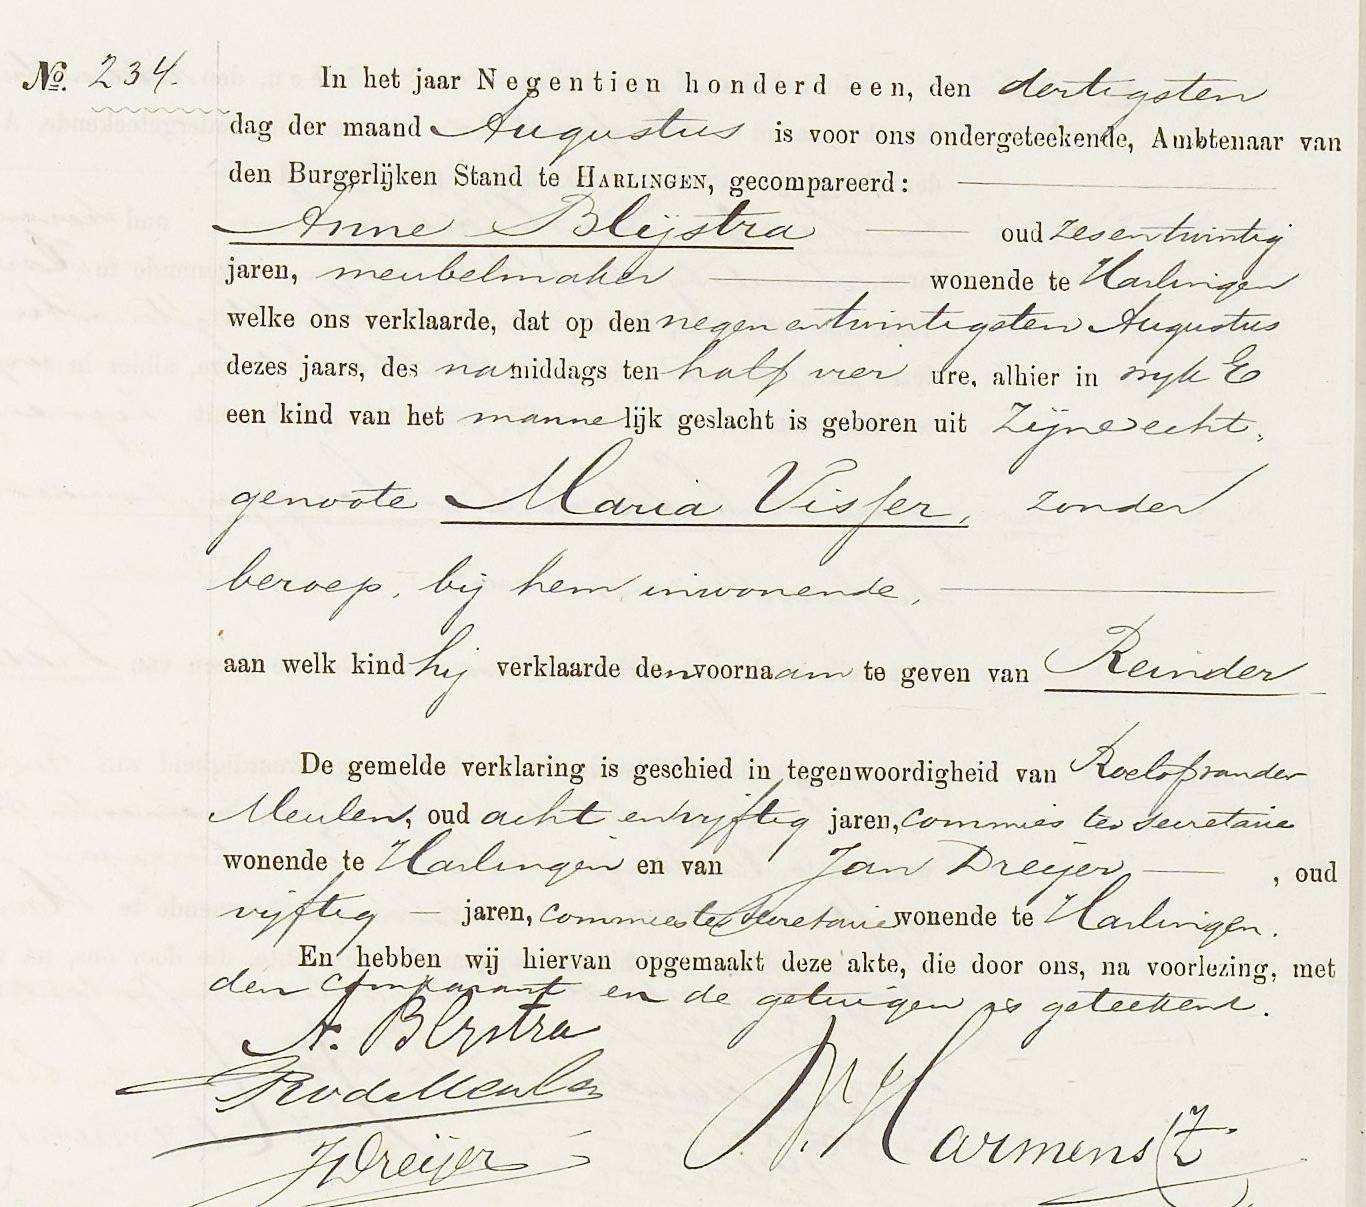 No. 234.
In het jaar Negentien honderd een, den dertigsten
dag der maand Augustus is voor ons ondergeteekende, Ambtenaar van
den Burgerlijken Stand te HARLINGEN, gecompareerd:
Anne Blijstra oud zesentwintig
jaren, meubelmaker wonende te Harlingen
welke ons verklaarde, dat op den negenentwintigsten Augustus
dezes jaars, des namiddags ten half vier ure, alhier in wijk E
een kind van het mannelijk geslacht is geboren uit Zijne echt,
genoote Maria Visser, zonder
beroep, bij hem inwonende,
aan welk kind hij verklaarde den voornaam te geven van Reinder
De gemelde verklaring is geschied in tegenwoordigheid van Roelof van der
Meulen, oud acht en vijftig jaren, commies ter secretarie
wonende te Harlingen en van Jan Dreijer, oud
vijftig jaren, commies ter Secretarie wonende te Harlingen.
En hebben wij hiervan opgemaakt deze akte, die door ons, na voorlezing, met
den comparant en de getuigen is geteekend.
A. Blijstra
RvdMeulen
JDreijer
Harmens Z